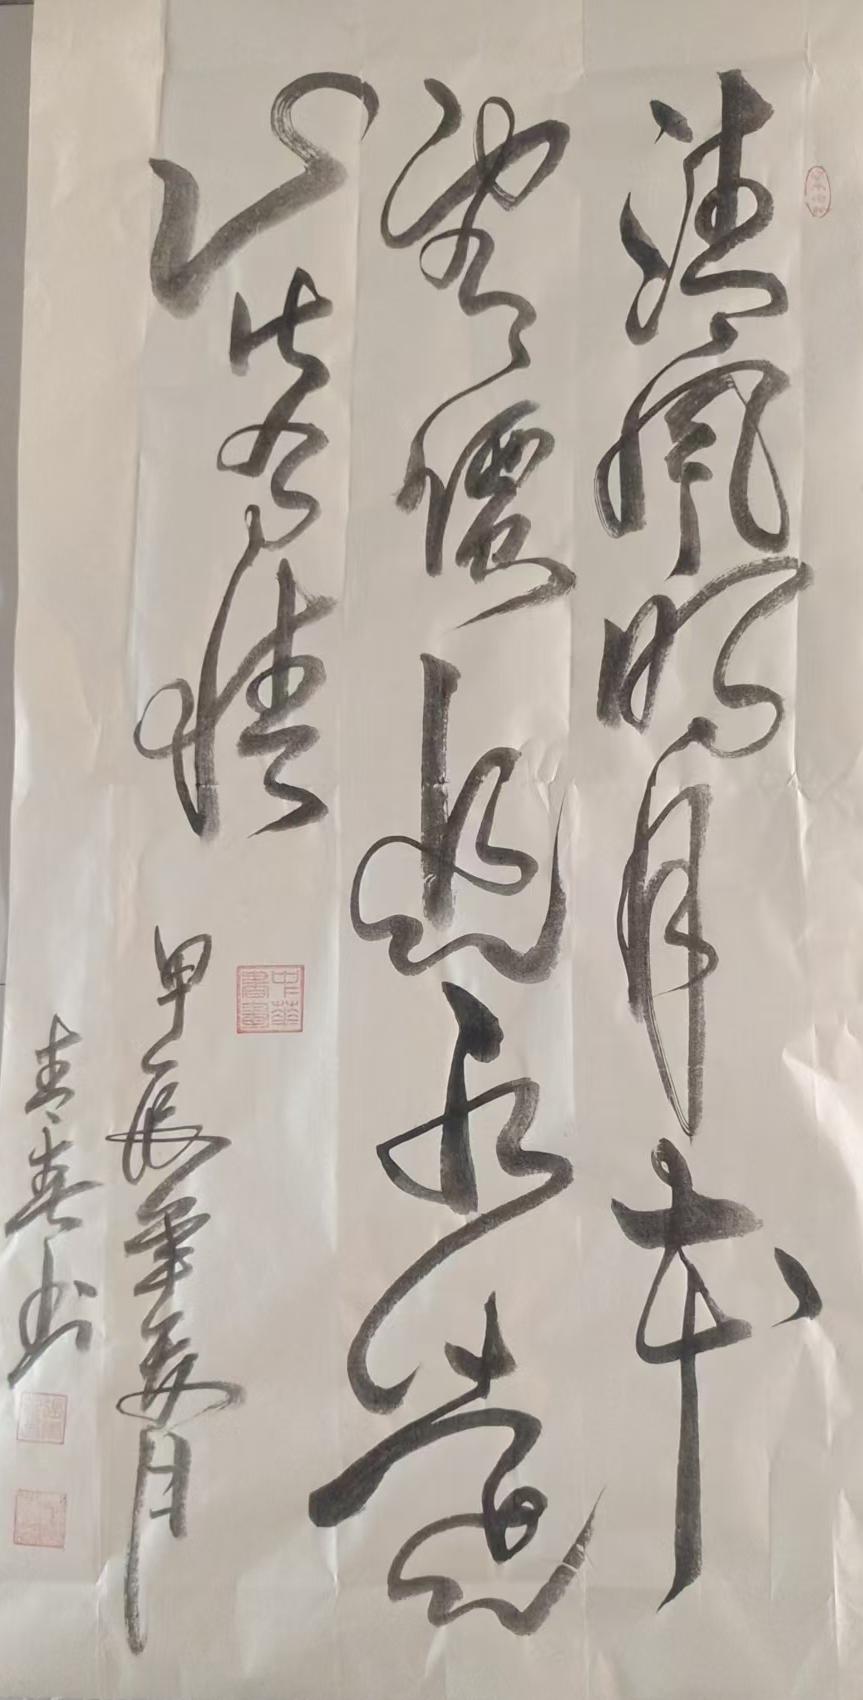 清風明月本
無價近水遠
山皆有情
甲辰年夏月
青春书
中華書畫